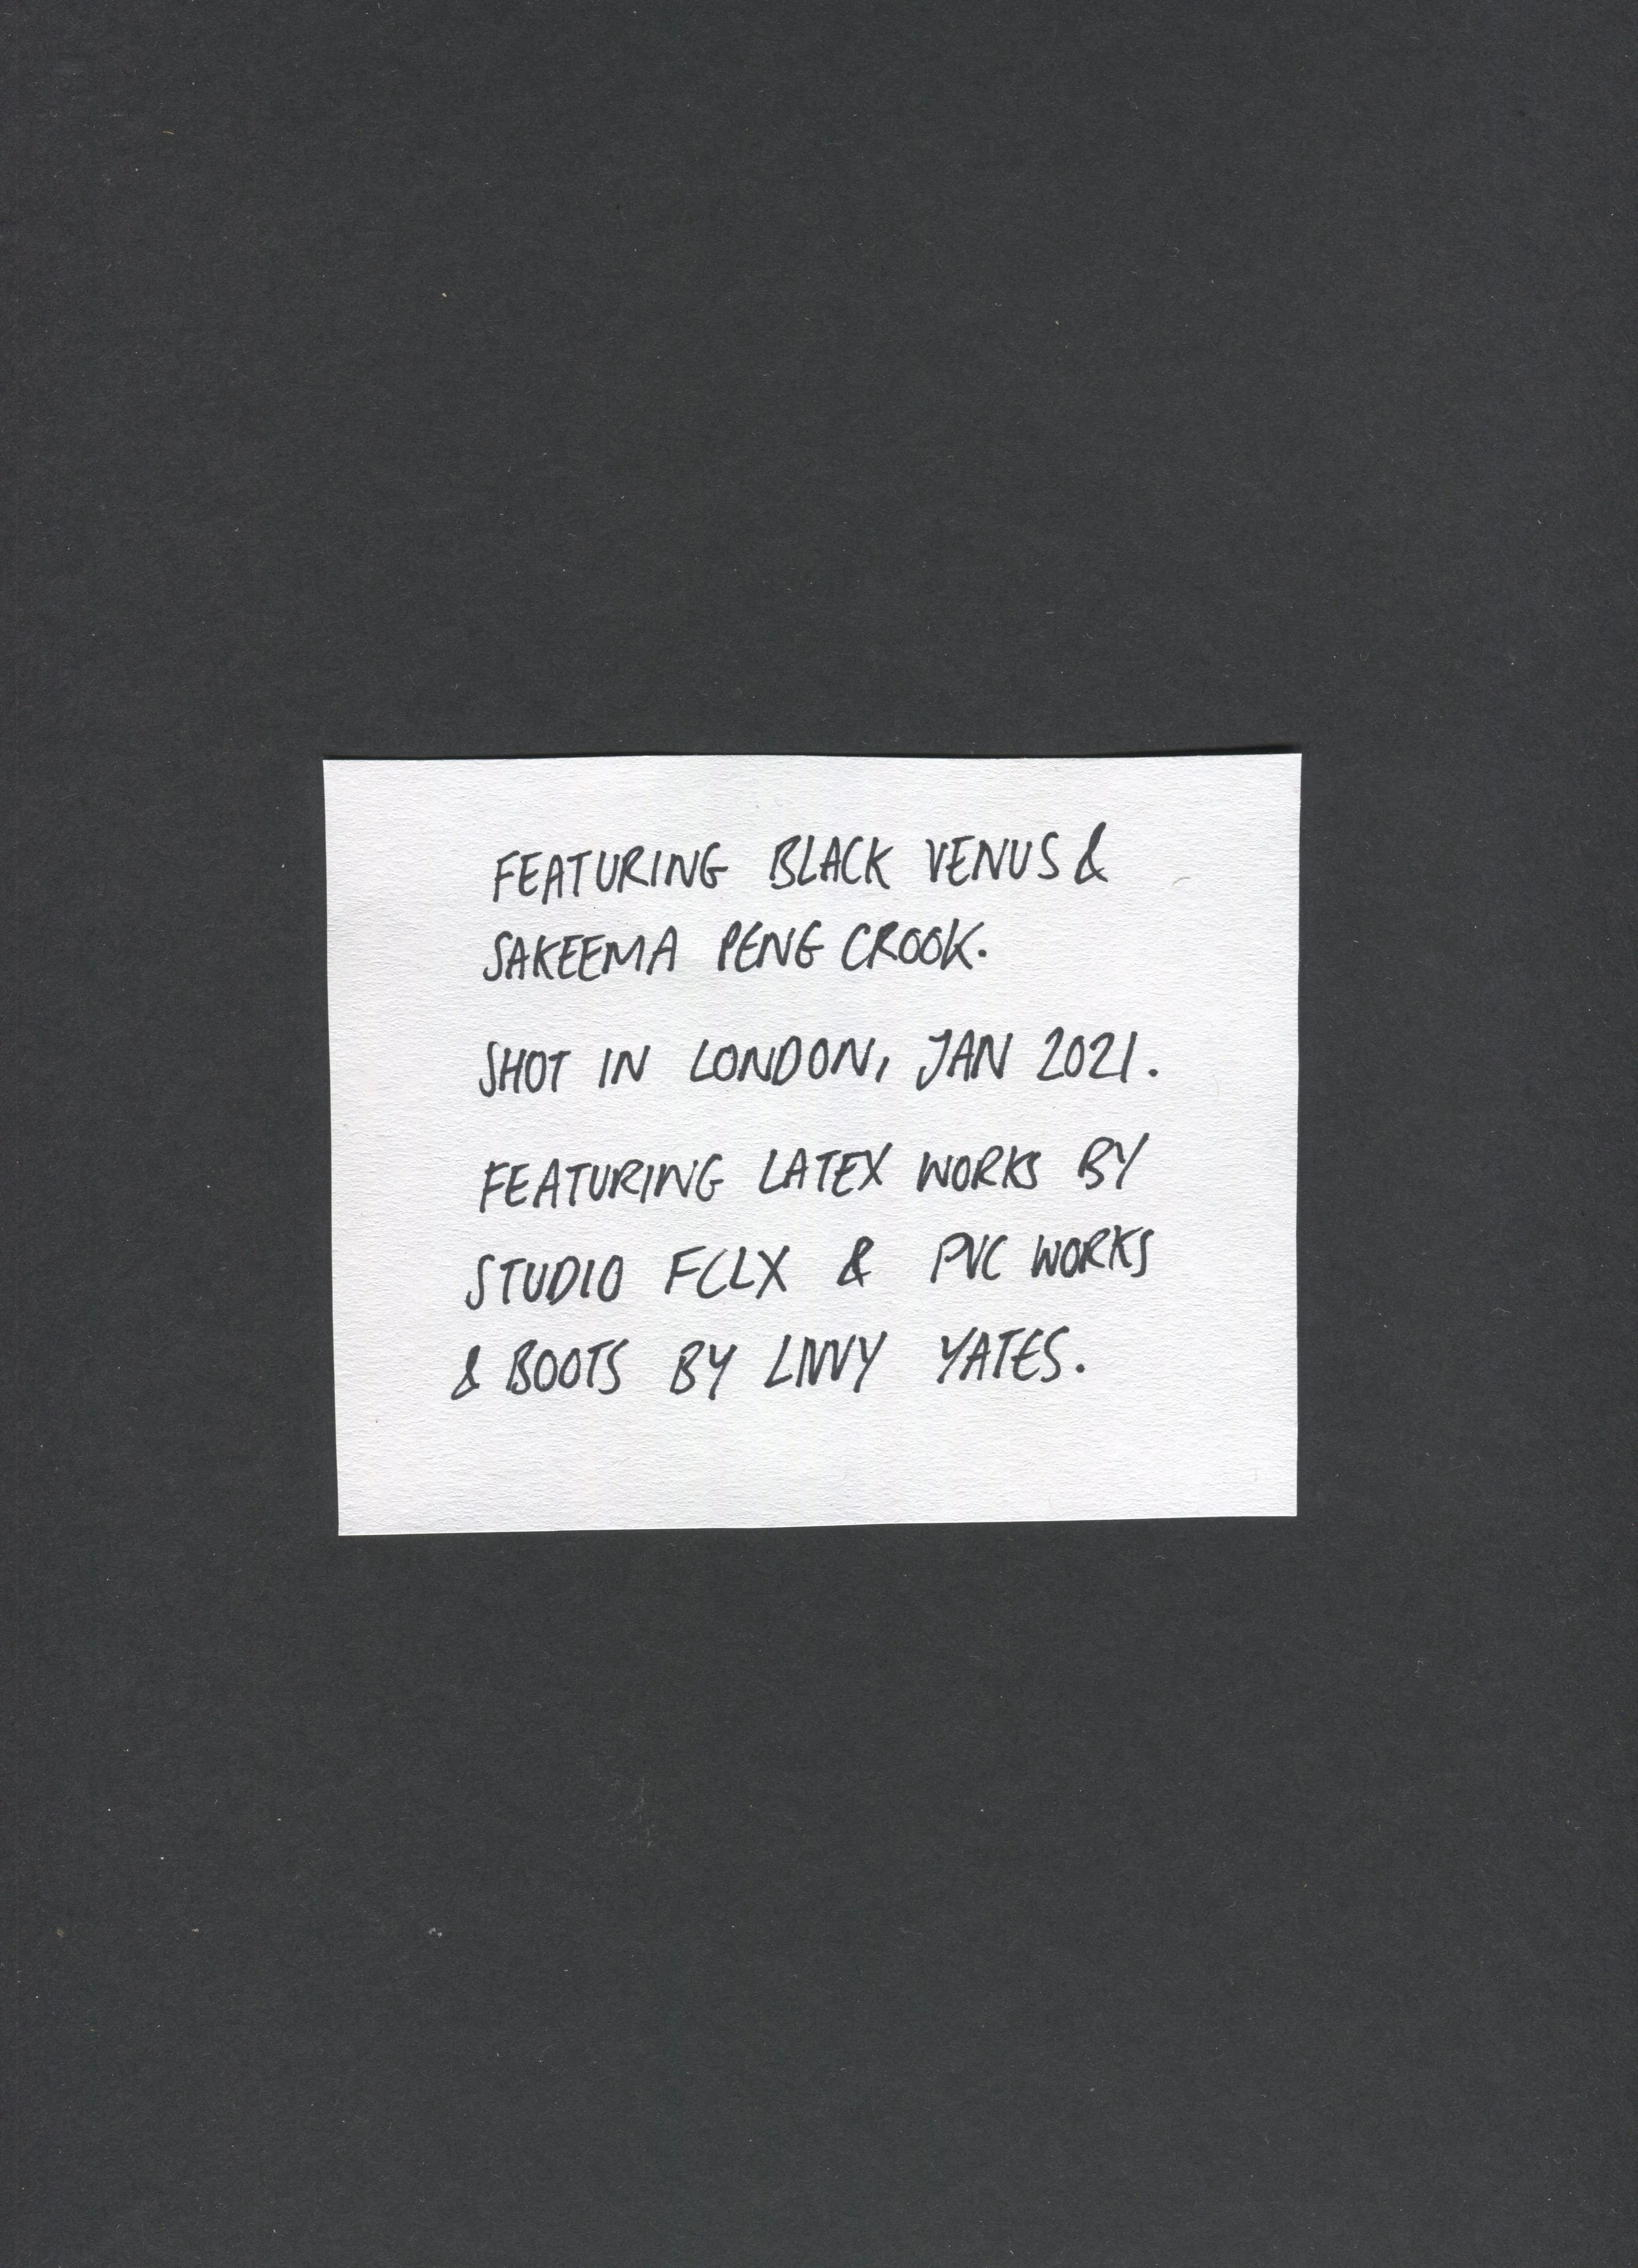 FEATURING BLACK VENUS &
SAKEEMA PENG CROOK.
SHOT IN LONDON, JAN 2021.
FEATURING LATEX WORKS BY
STUDIO FCLX & PVC WORKS
& BOOTS BY LIVVY YATES.